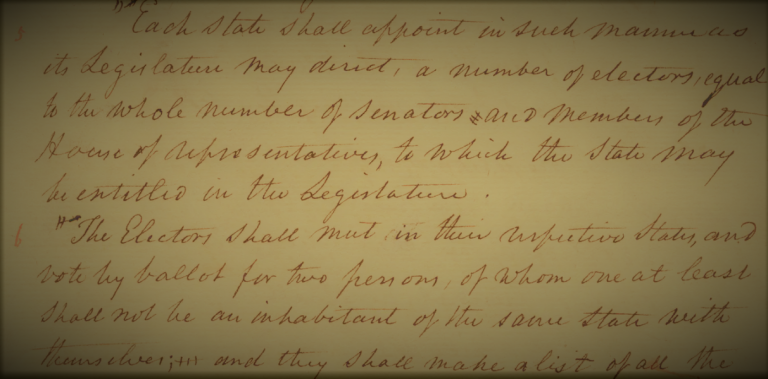 5 Each State shall appoint in such manner as
its Legislature may direct, a number of electors, equal
to the whole number of Senators and Members of the
House of representatives, to which the State may
be entitled in the Legislature.
6 The Electors shall meet in their respective States, and
vote by ballot for two persons, of whom one at least
shall not be an inhabitant of the same State with
themselves; and they shall make a list of all the